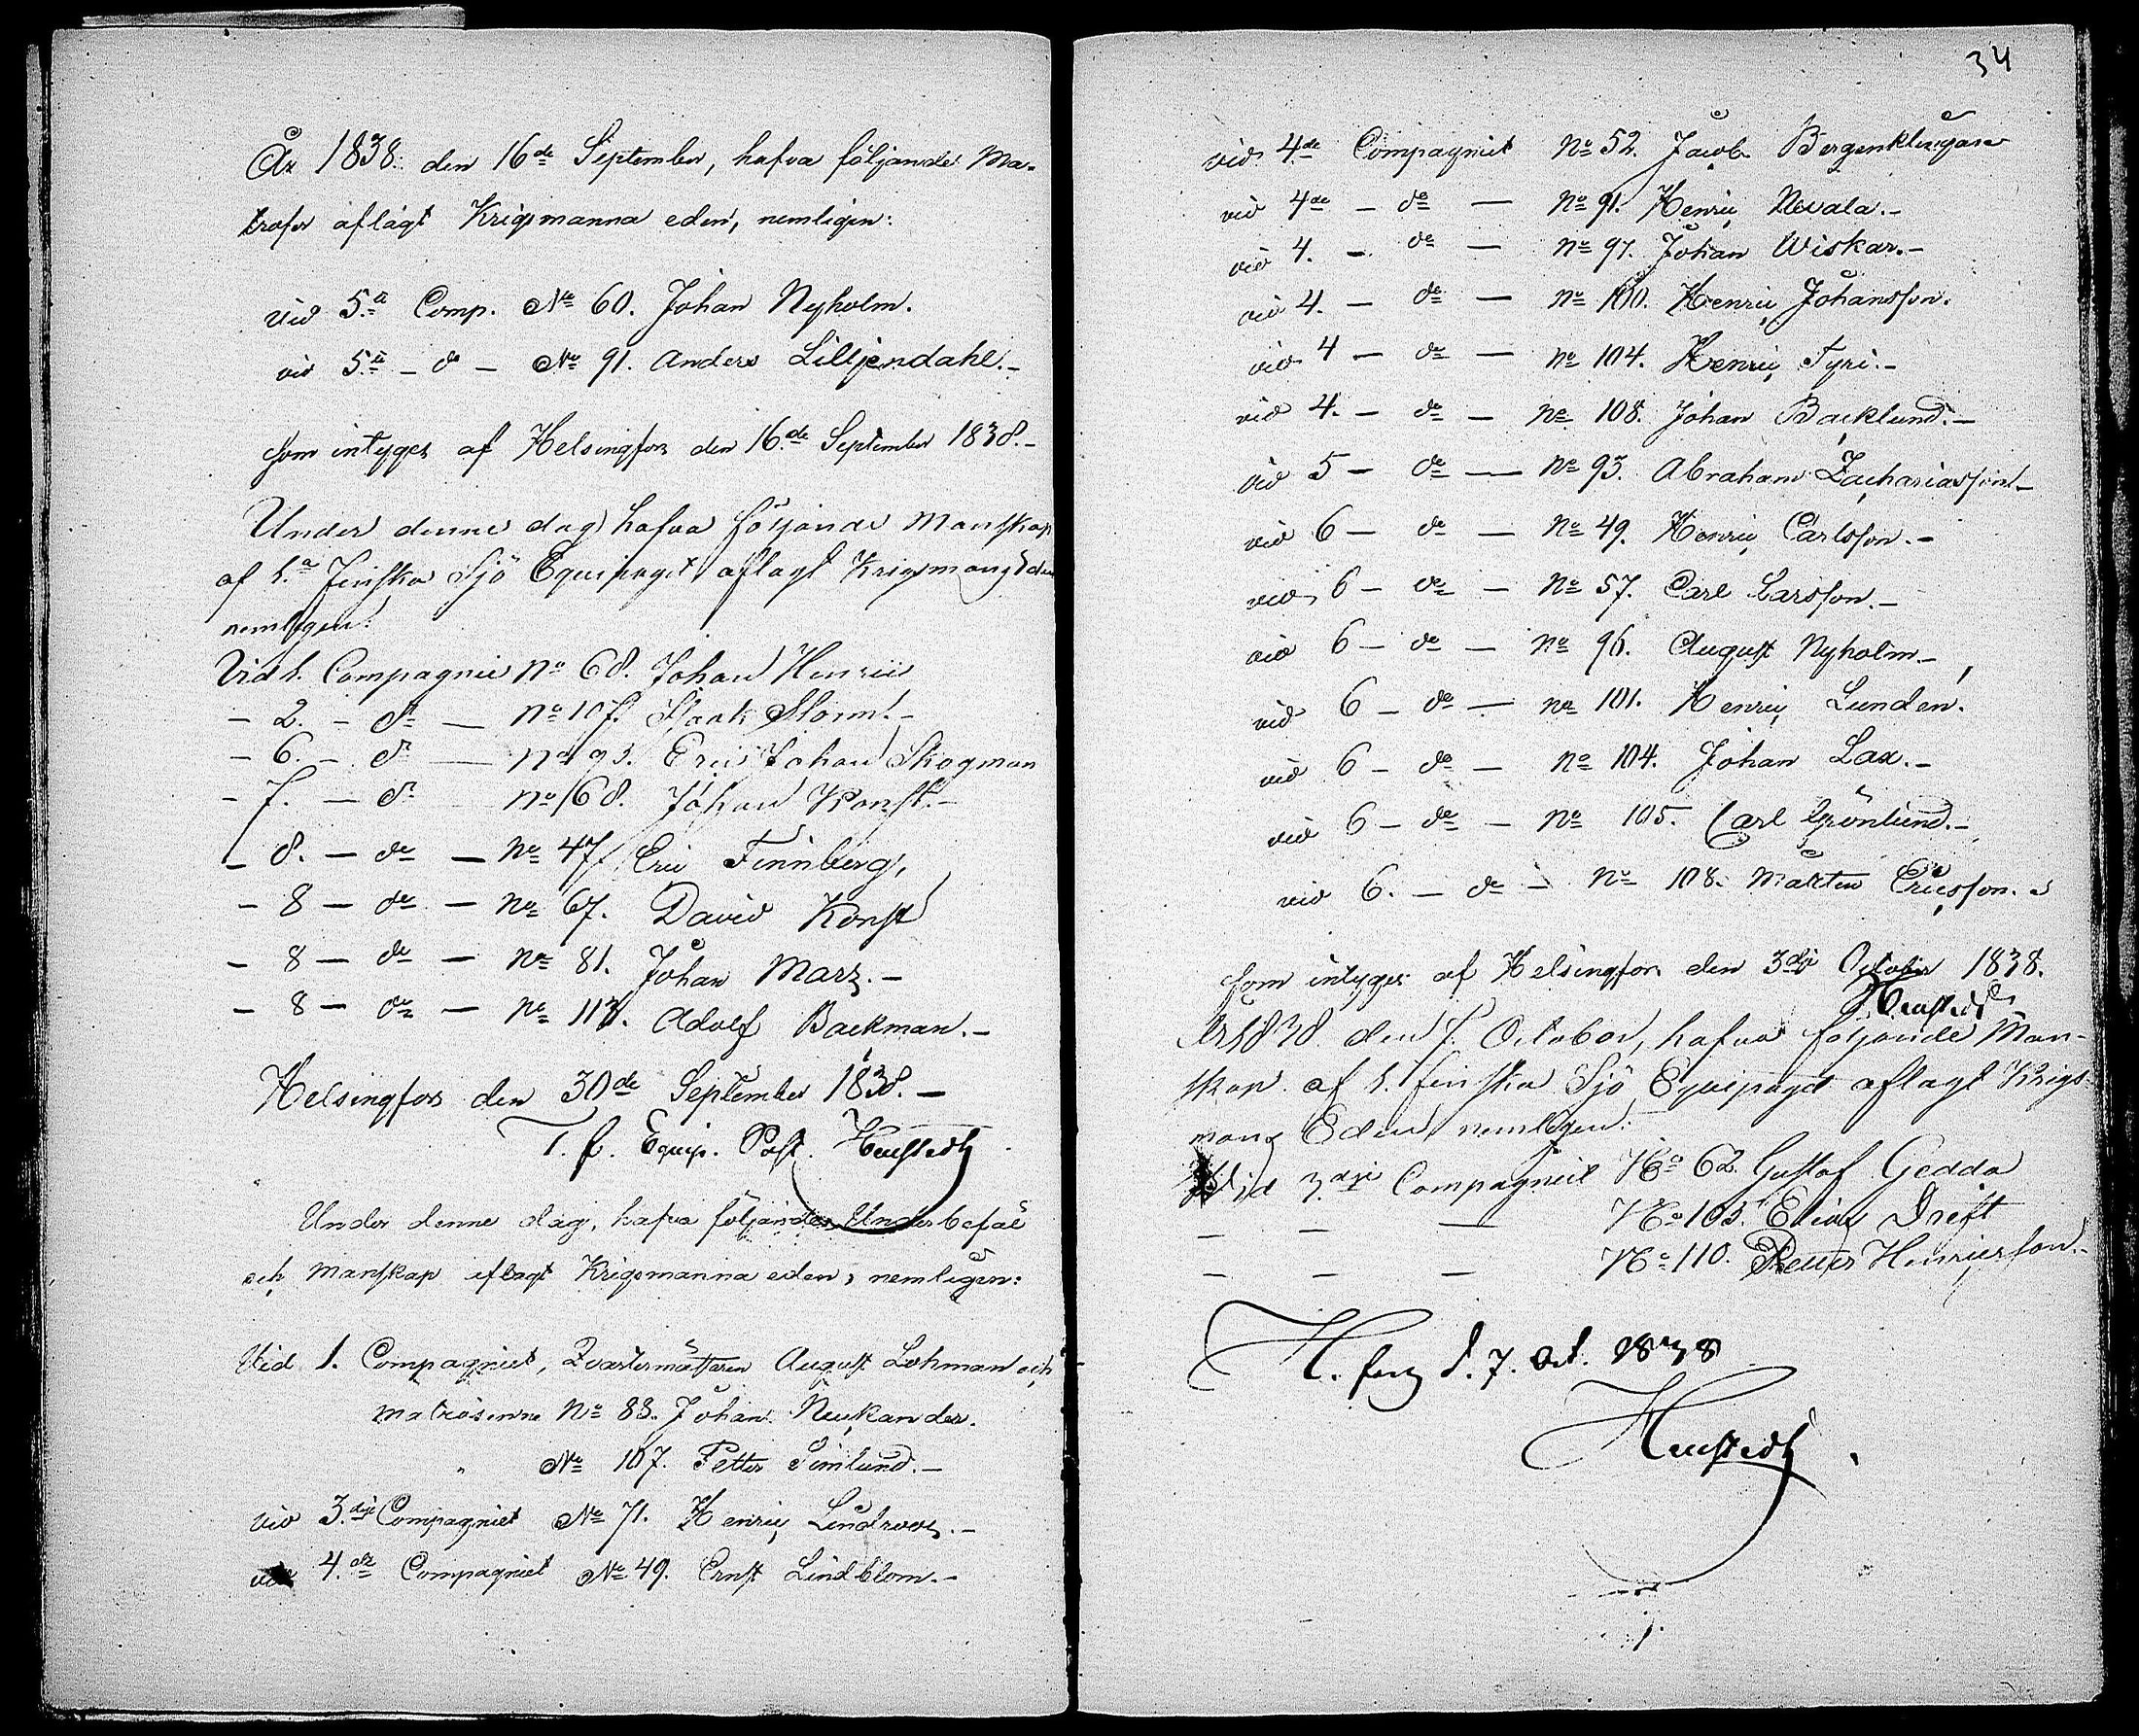 År 1838. den 16de September, hafva följande Ma-
troser aflagt Krigsmanna eden, nemligen:
vid 5.a Comp. No 60. Johan Nyholm.
vid 5.a - d - No 91. Anders Lilljendahl.-
som intygas af Helsingfors den 16.de September 1838.-
Under denne dag hafva följande Manskap
af 1.a Finska Sjö Equipaget aflagt Krigsmans Eden
nemligen:
Vid 1. Compagnie No 68. Johan Henric
- 2. - do - No 107. Isaak Storm.-
- 6. - do - No 93. Eric Johan Skogman
- 7. - do No 168. Johan Konst.-
- 8. - do - No 47. Eric Finnberg,
- 8 - do - No 67. David Konst
- 8 - do - No 81. Johan Marz.-
- 8 - do - No 113. Adolf Backman.-
Helsingfors den 30de September 1838.-
T. f. Equip. Past. Heustedt
Under denne dag, hafva följande Underbefäl
och Manskap aflagt Krigsmanna eden, nemligen:
Vid 1. Compagniet, Qvartermästaren August Lohman och
matroserne No 83. Johan Neukander.
" No 107. Petter Simlund.-
vid 3.dje Compagniet No 71. Henric Lindroos.-
vid 4.de Compagniet No 49. Ernst Lindblom.-
34
vid 4.de Compagniet No 52. Jacob
vid 4de - do - No 91. Henric Nevala.-
vid 4. - do - No 97. Johan Wiskar.-
vid 4. - do - No 100. Henric Johansson.
vid 4 - do - No 104. Henric Tyri.-
vid 4. - do - No 108. Johan Backlund.-
vid 5 - do - No 93. Abraham Zachariasson.-
vid 6 - do - No 49. Henric Carlsson.-
vid 6 - do - No 57. Carl Larsson.-
vid 6 - do - No 96. August Nyholm.-
vid 6 - do - No 101. Henric Lunden.
vid 6 - do - No 104. Johan Lax.-
vid 6 - do - No 105. Carl Grönlund.-
vid 6. - do - No 108. Mårten Ericsson.-
som intygas af Helsingfors den 3dje October 1838.
Heustedt
År 1838. den 7. October, hafva följande Man-
skap af 1. finska Sjö Equipaget aflagt Krigs-
mans Eden nemligen:
Vid 3.dje Compagniet No 62. Gustaf Gedda
- - - No 103. Elias Dreft
- - - No 110. Petter Henricsson.-
H.fors d. 7. Oct. 1838
Heustedt.